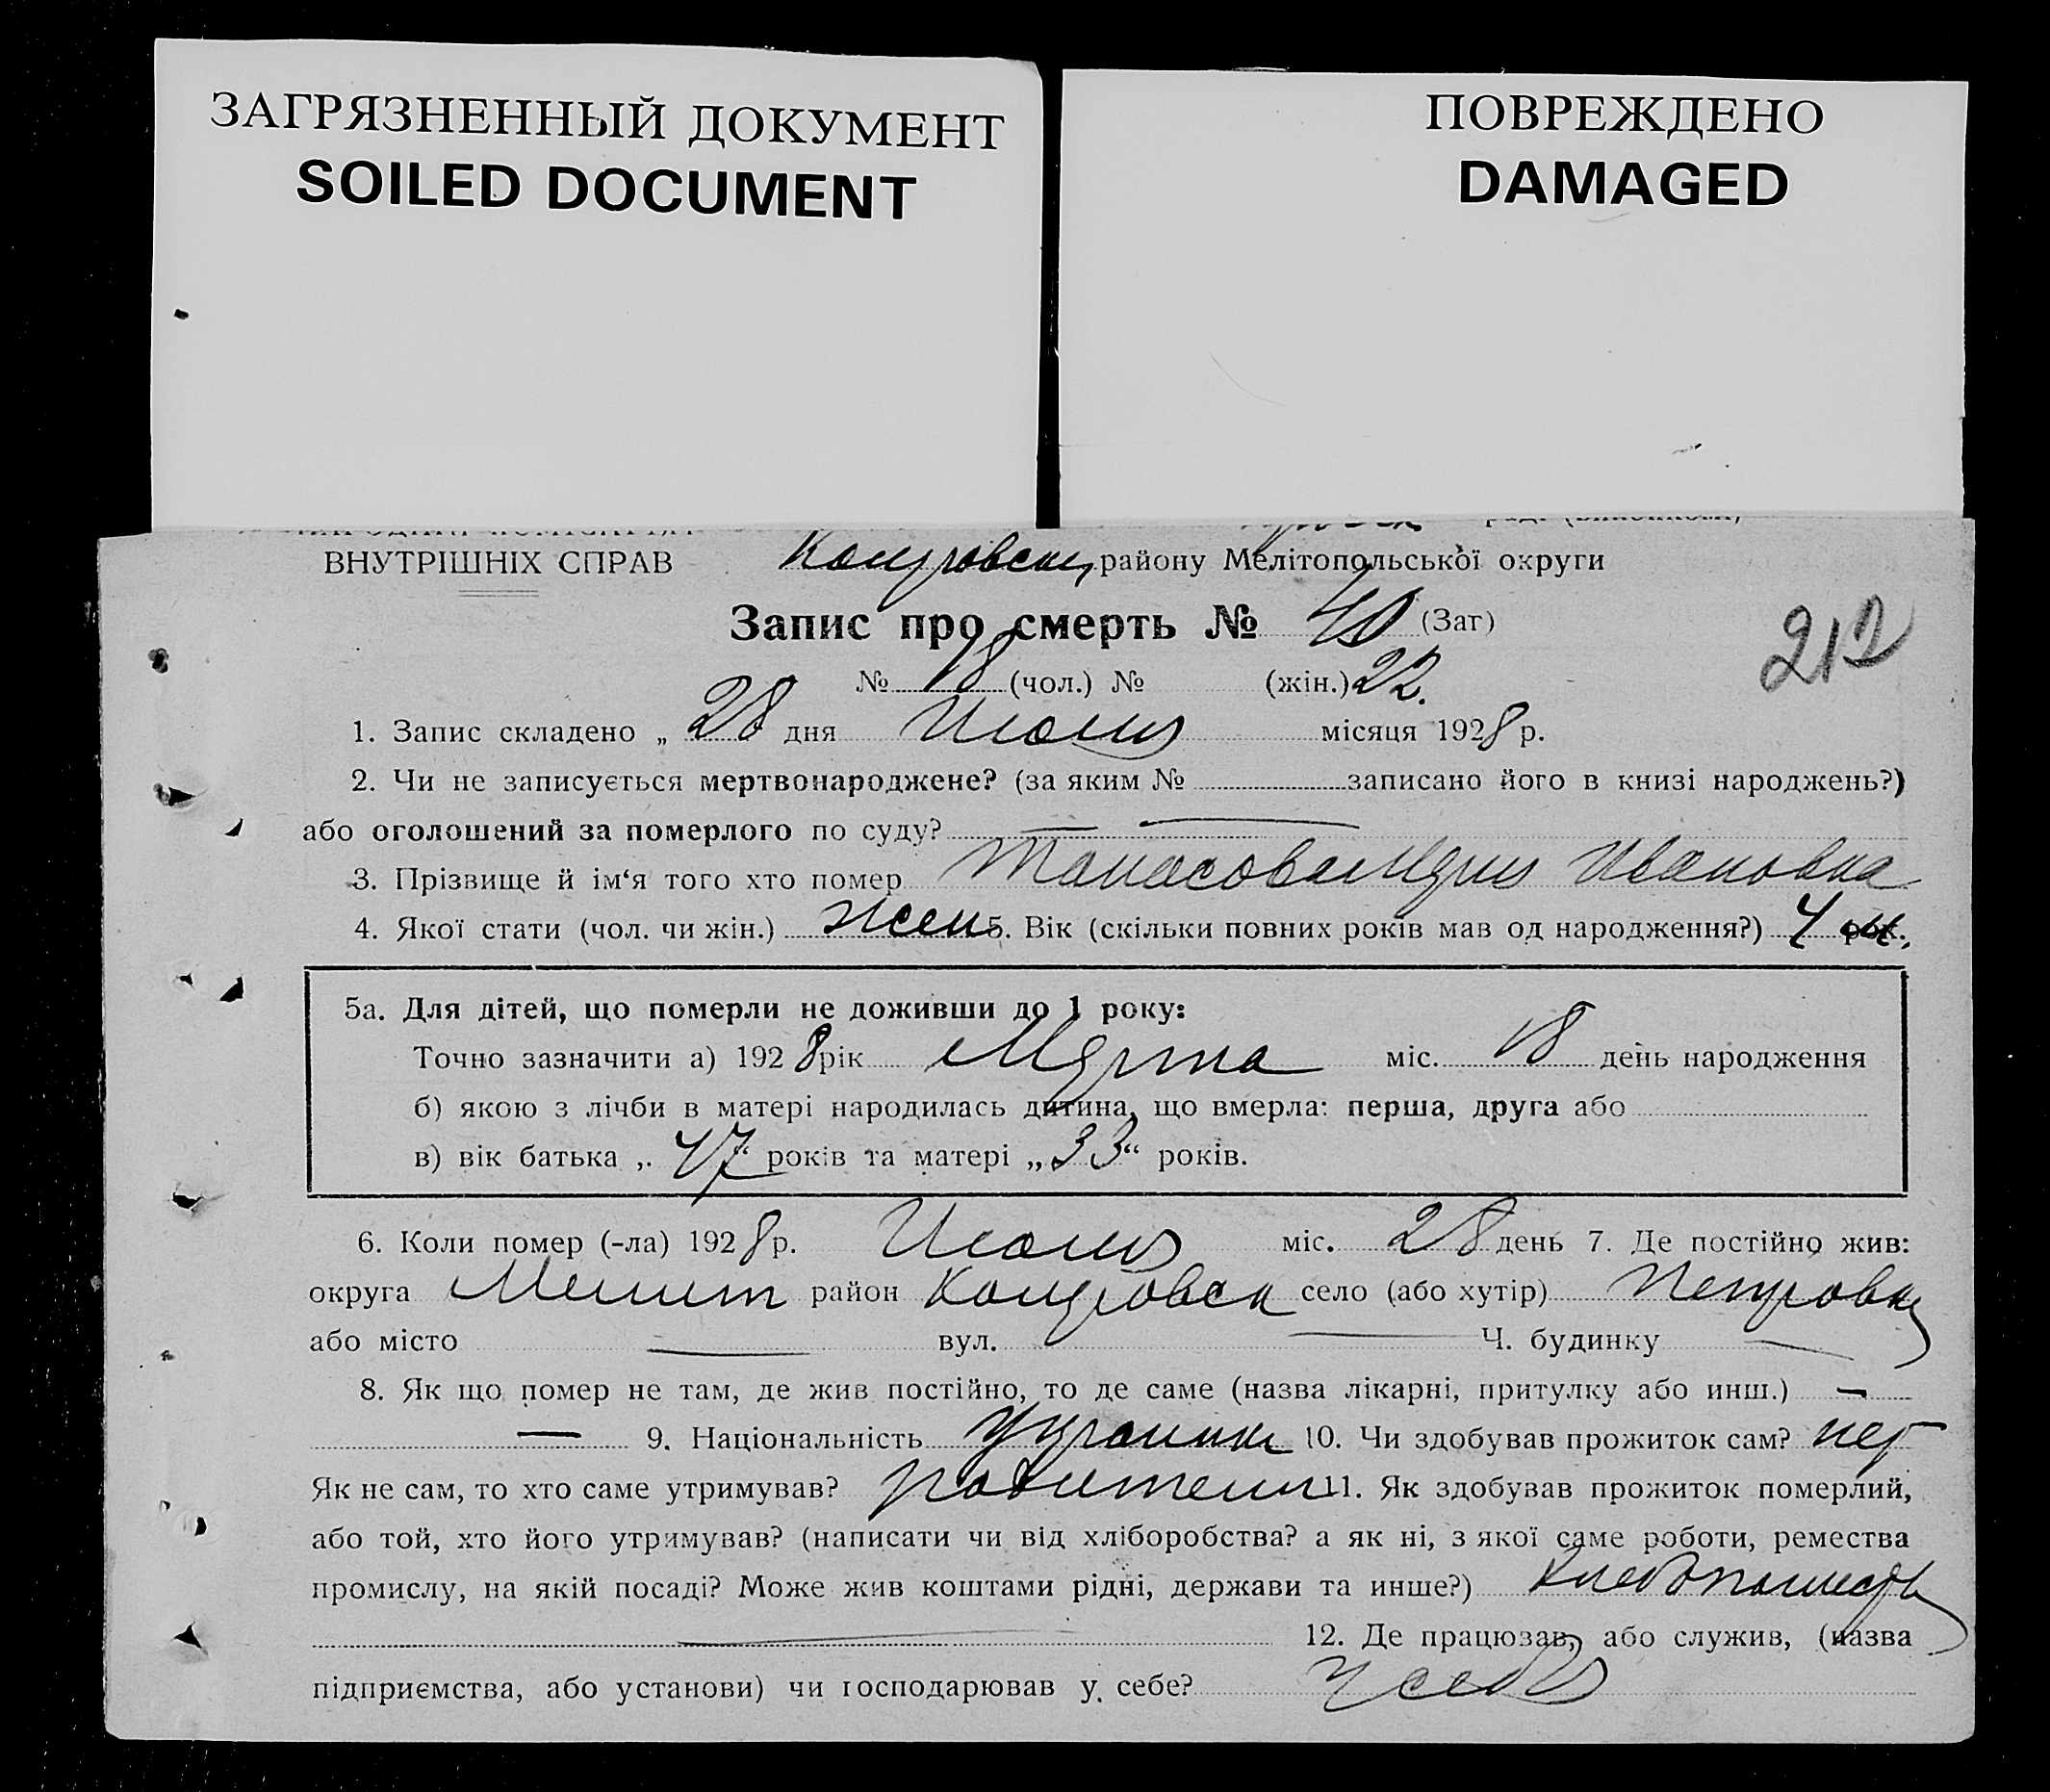 ЗАГРЯЗНЕННЫЙ ДОКУМЕНТ
SOILED DOCUMENT
ПОВРЕЖДЕНО
DAMAGED
ВНУТРІШНІХ СПРАВ району Мелітопольської округи
Запис про смерть № 40 (Заг)
212
№ 18 (чол.) № (жін.) 22.
1. Запис складено „ 28 дня Июля місяця 1928 р.
2. Чи не записується мертвонароджене? (за яким № записано його в книзі народжень?)
або оголошений за померлого по суду? — —
3. Прізвище й ім‘я того хто помер Танасова Мария Ивановна
4. Якої стати (чол. чи жін.) жен 5. Вік (скільки повних років мав од народження?) 4 рок.
5а. Для дітей, що померли не доживши до 1 року:
Точно зазначити а) 1928 рік Марта міс. 18 день народження
б) якою з лічби в матері народилась дитина, що вмерла: перша, друга або
в) вік батька „ 47 “ років та матері „ 33 “ років.
6. Коли помер (-ла) 1928 р. Июля міс. 28 день 7. Де постійно жив:
округа Мелит район село (або хутір) Петровка
або місто — вул. — Ч. будинку —
8. Як що помер не там, де жив постійно, то де саме (назва лікарні, притулку або инш.) —
— 9. Національність Украинк 10. Чи здобував прожиток сам? нет
Як не сам, то хто саме утримував? родители 11. Як здобував прожиток померлий,
або той, хто його утримував? (написати чи від хліборобства? а як ні, з якої саме роботи, ремества
промислу, на якій посаді? Може жив коштами рідні, держави та инше?) Хлебопашеств
— 12. Де працював, або служив, (назва
підприємства, або установи) чи господарював у себе? У себя